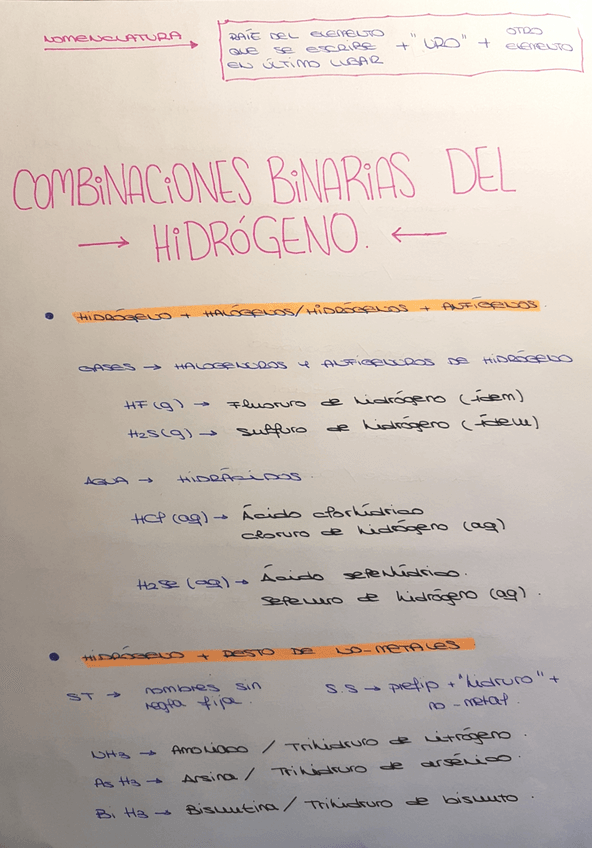 NOMENCLATURA →
RAÍZ DEL ELEMENTO QUE SE ESCRIBE EN ÚLTIMO LUGAR + "URO" + OTRO ELEMENTO
COMBINACIONES BINARIAS DEL
→ HIDRÓGENO. ←
• HIDRÓGENO + HALÓGENOS/HIDRÓGENOS + ANFÍGENOS
GASES → HALOGENUROS Y ANFIGENUROS DE HIDRÓGENO
HF (g) → Fluoruro de hidrógeno (ídem)
H2S (g) → Sulfuro de hidrógeno (ídem)
AGUA → HIDRÁCIDOS
HCl (aq) → Ácido clorhídrico
cloruro de hidrógeno (aq)
H2Se (aq) → Ácido selenhídrico.
Selenuro de hidrógeno (aq).
• HIDRÓGENO + RESTO DE NO-METALES
ST → nombres sin regla fija.
S.S → prefijo + "hidruro" + no-metal.
NH3 → Amoniaco / Trihidruro de nitrógeno.
AsH3 → Arsina / Trihidruro de arsénico.
BiH3 → Bismutina / Trihidruro de bismuto.